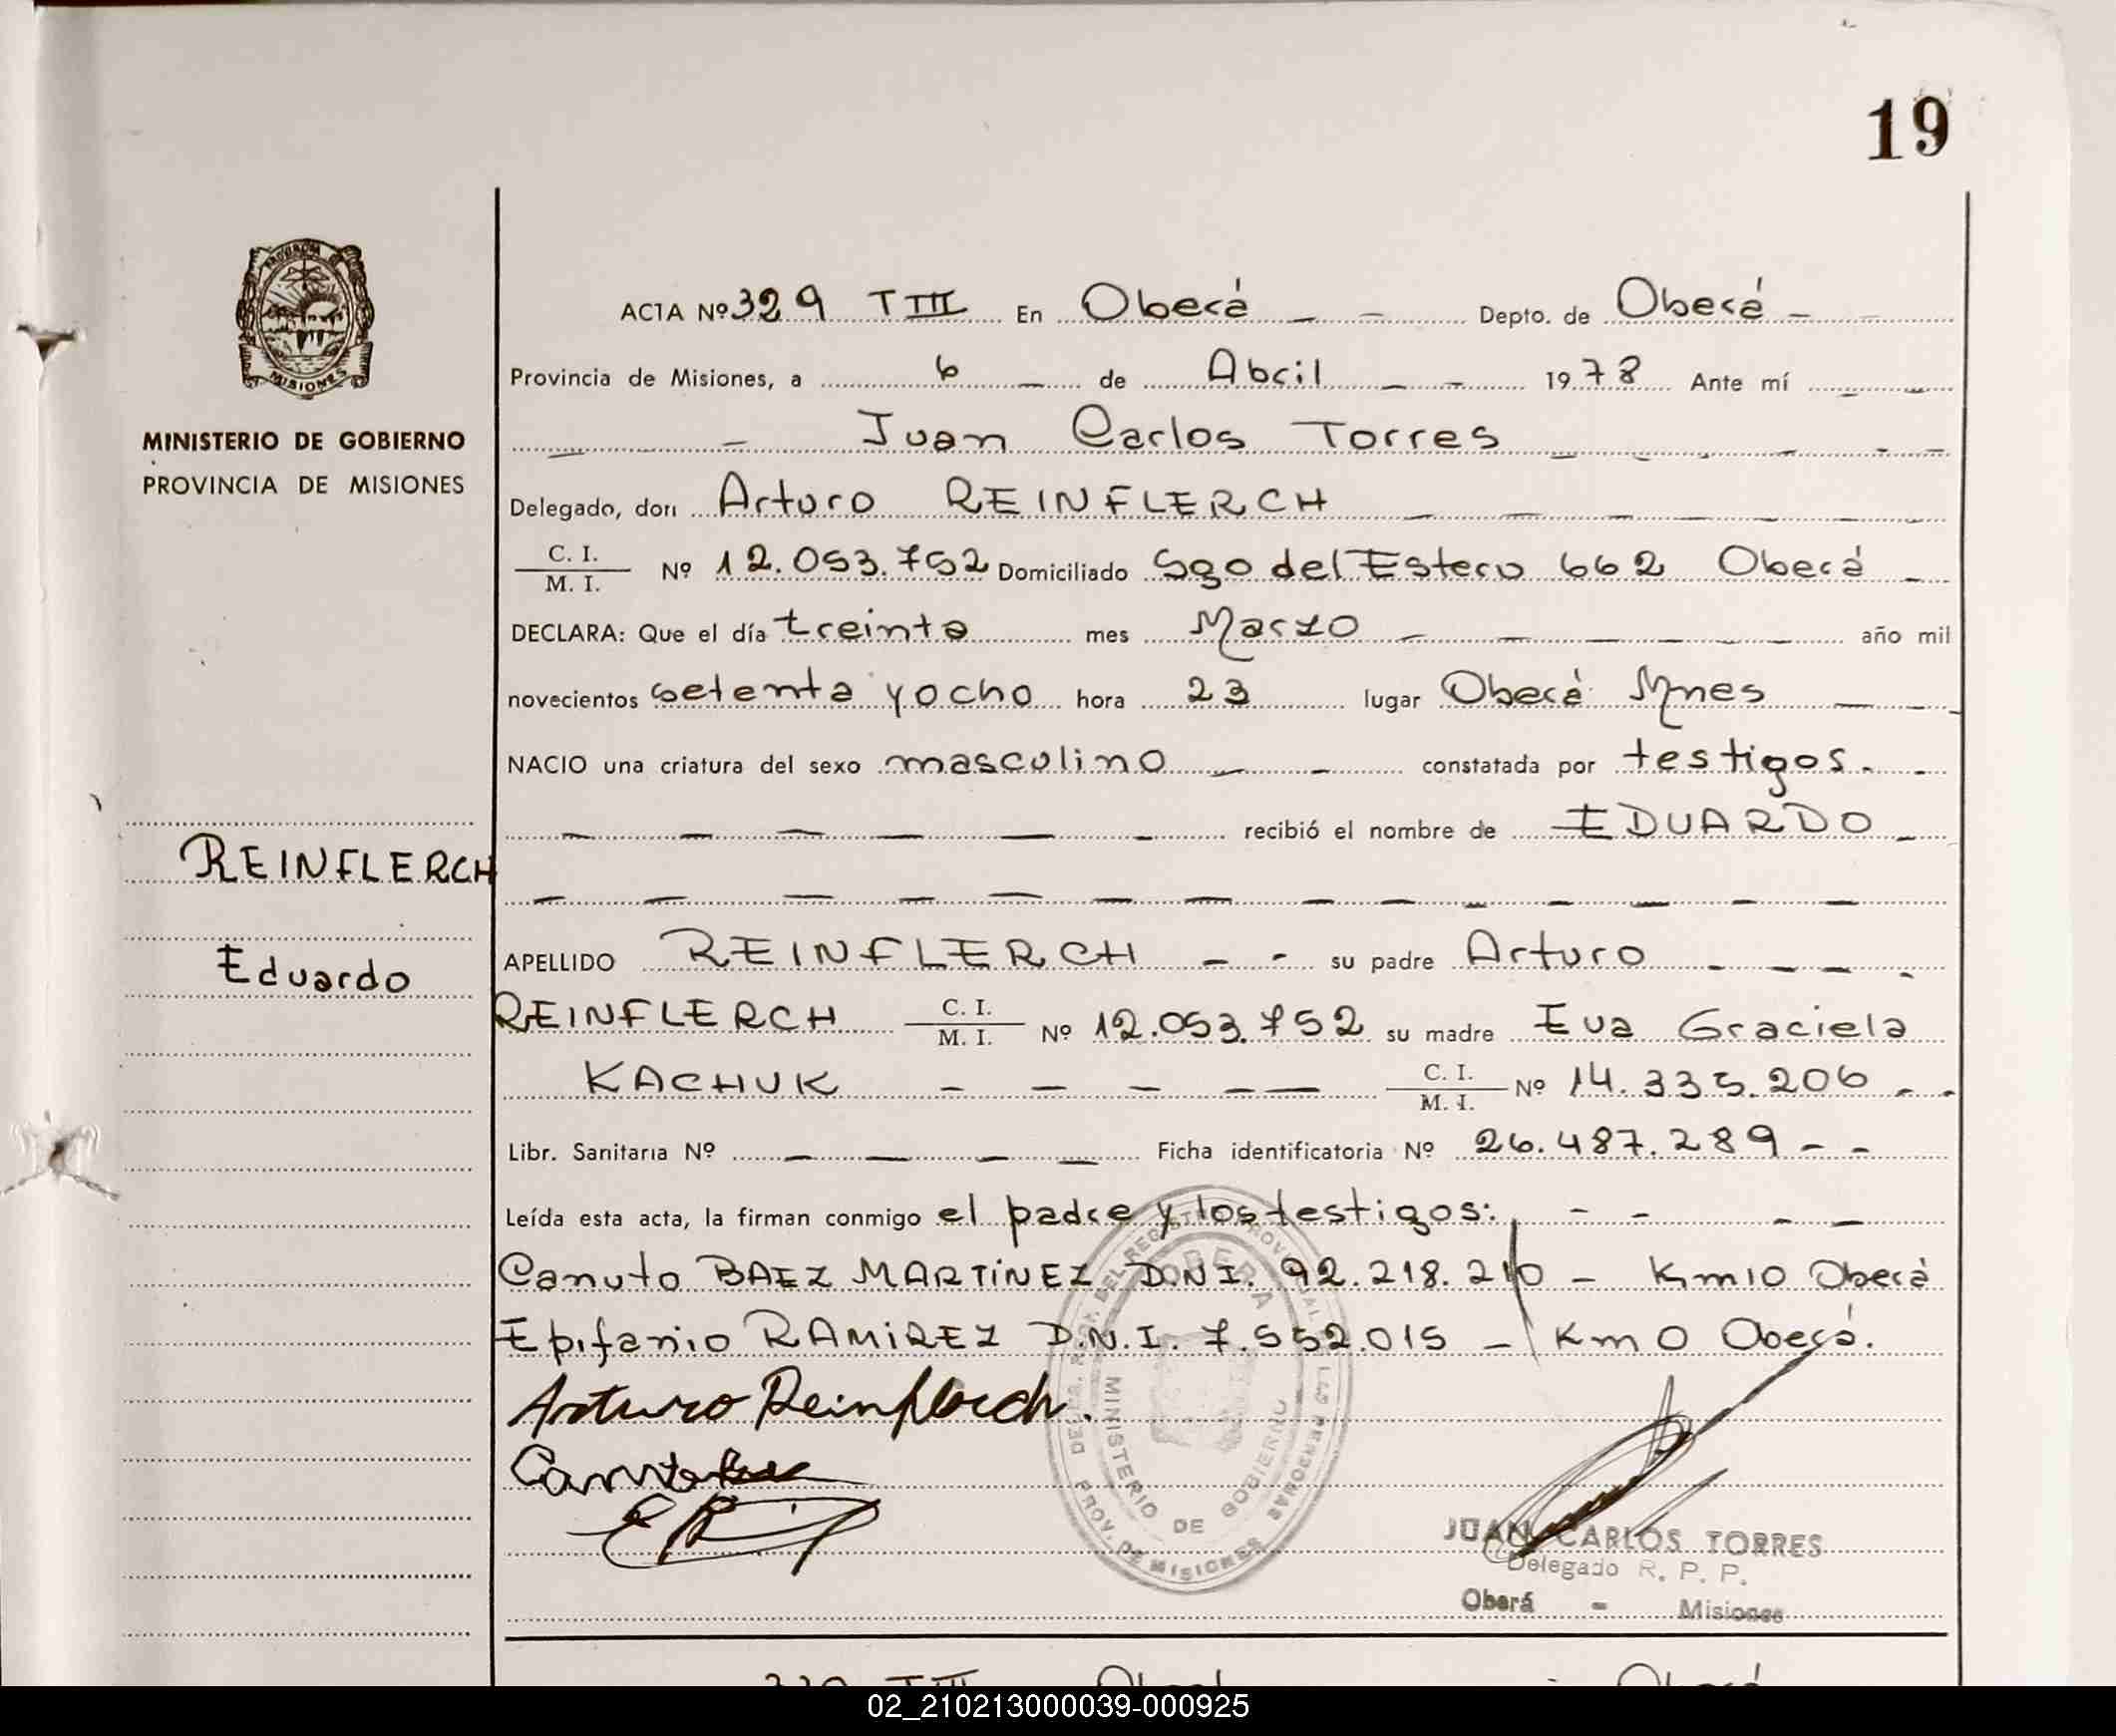 19
PROVINCIA DE
MISIONES
MINISTERIO DE GOBIERNO
PROVINCIA DE MISIONES
REINFLERCH
Eduardo
ACTA Nº 329 T III En Oberá Depto. de Oberá
Provincia de Misiones, a 6 de Abril 1978 Ante mí
Juan Carlos Torres
Delegado, don Arturo REINFLERCH
C. I. / M. I. Nº 12.053.752 Domiciliado Sgo del Estero 662 Oberá
DECLARA: Que el día treinta mes Marzo año mil
novecientos setenta y ocho hora 23 lugar Oberá Mnes
NACIO una criatura del sexo masculino constatada por testigos.
recibió el nombre de EDUARDO
APELLIDO REINFLERCH su padre Arturo
REINFLERCH C. I. / M. I. Nº 12.053.752 su madre Eva Graciela
KACHUK C. I. / M. I. Nº 14.335.206
Libr. Sanitaria Nº Ficha identificatoria Nº 26.487.289
Leída esta acta, la firman conmigo el padre y los testigos:
Canuto BAEZ MARTINEZ D.N.I. 92.218.210 - Km 10 Oberá
Epifanio RAMIREZ D.N.I. 7.552.015 - Km 0 Oberá.
Arturo Reinflerch.
MINISTERIO DE GOBIERNO
PROV. DE MISIONES
OBERA
JUAN CARLOS TORRES
Delegado R. P. P.
Oberá - Misiones
02_210213000039-000925